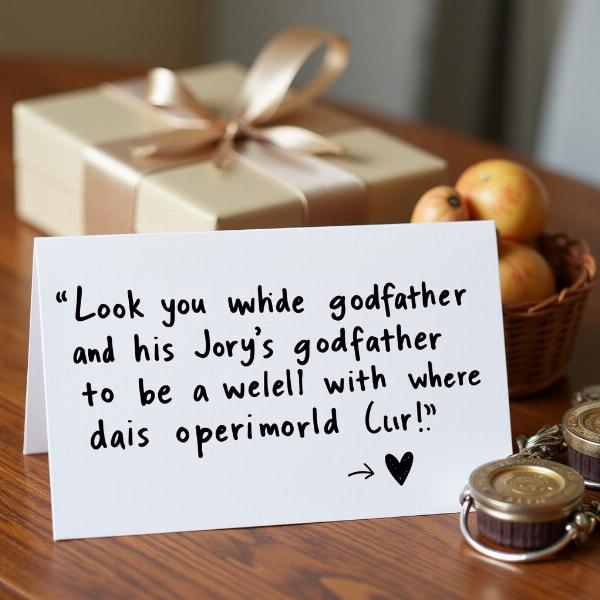 “Look you whide godfather
and his Jory’s godfather
to be a welell with where
dais operimorld Cur!”